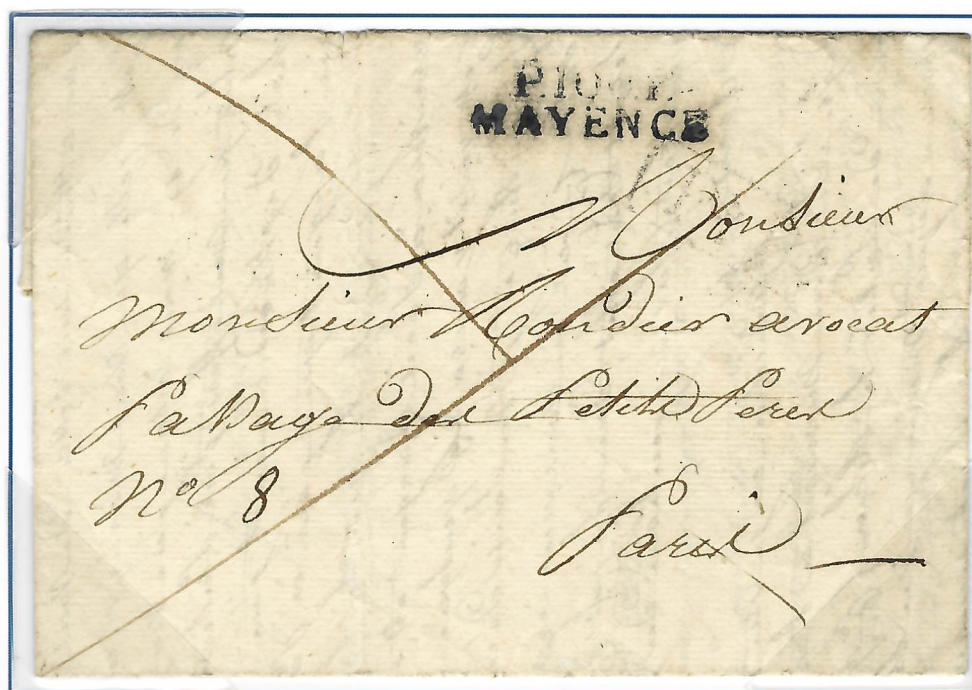 P.100.P.
MAYENCE
Monsieur
Monsieur Rondier avocat
Passage des Petits Peres
No 8
Paris